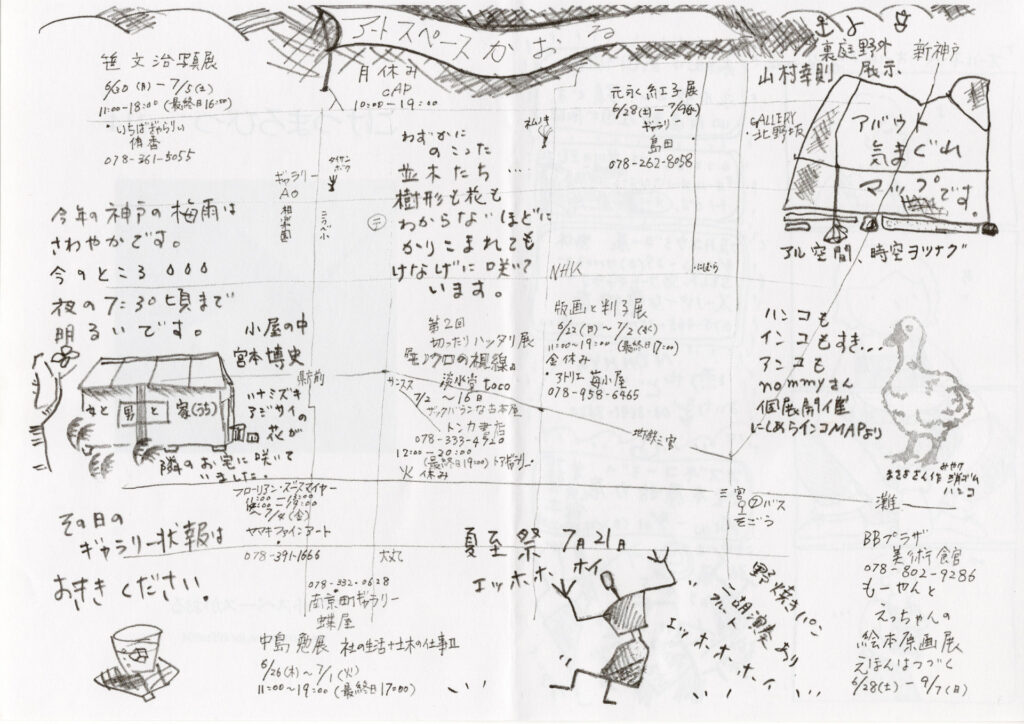 アートスペースかおる
月休み
CAP
10:00-19:00
笹 文治 写真展
6/30(月)-7/5(土)
11:00-18:00(最終日16:00)
・いちばぎゃらりぃ
侑香
078-361-5055
元永 紅子展
6/28(土)-7/9(水)
ギャラリー
島田
078-262-8058
裏庭野外
展示
山村幸則
新神戸
GALLERY
北野坂
アバウト
気まぐれ
マップです。
アル空間、時空ヲツナグ
わずかに
のこった
並木たち…
樹形も花も
わからないほどに
かりこまれても
けなげに咲いて
います。
タイサンボク
ギャラリー
AO
相楽園
こうべ小
〒
今年の神戸の梅雨は
さわやかです。
今のところ。。。
夜の7:30頃まで
明るいです。
NHK
・にしむら
小屋の中
宮本博史
県庁前
ハナミズキ
アジサイの
花が
隣のお宅に咲いて
いました。
女と 男と 家(35)
第2回
切ったりハッタリ展
モノクロの視線。
淡水堂 toco
7/2 ~16日
ザックバランな古本屋
トンカ書店
078-333-4720
12:00-20:00
(最終日19:00)トアギャラリー
火休み
版画と判子展
6/22(日)~7/2(水)
11:00~19:00(最終日17:00)
金休み
・アトリエ苺小屋
078-958-6965
ハンコも
インコもすき…
アンコも
nommyさん
個展開催
にしあらインコMAPより
まさきさん作 みやげ 消ゴム
ハンコ
地鉄三宮
三宮
②バス
そごう
灘
フローリアン・ズースマイヤー
~7/4(金)
ヤマキファインアート
078-391-1666
大丸
その日の
ギャラリー状報は
おききください
078-332-0628
南京町ギャラリー
蝶屋
中島 勉展 杜の生活+土木の仕事Ⅱ
6/26(木)~7/1(火)
11:00~19:00(最終日17:00)
夏至祭 7月21日
エッホホ、ホイ
野焼きパン
二胡演奏あり
フルート
エッホ、ホ、ホイ
BBプラザ
美術館
078-802-9286
もーやんと
えっちゃんの
絵本原画展
えほんはつづく
6/28(土)-9/7(日)